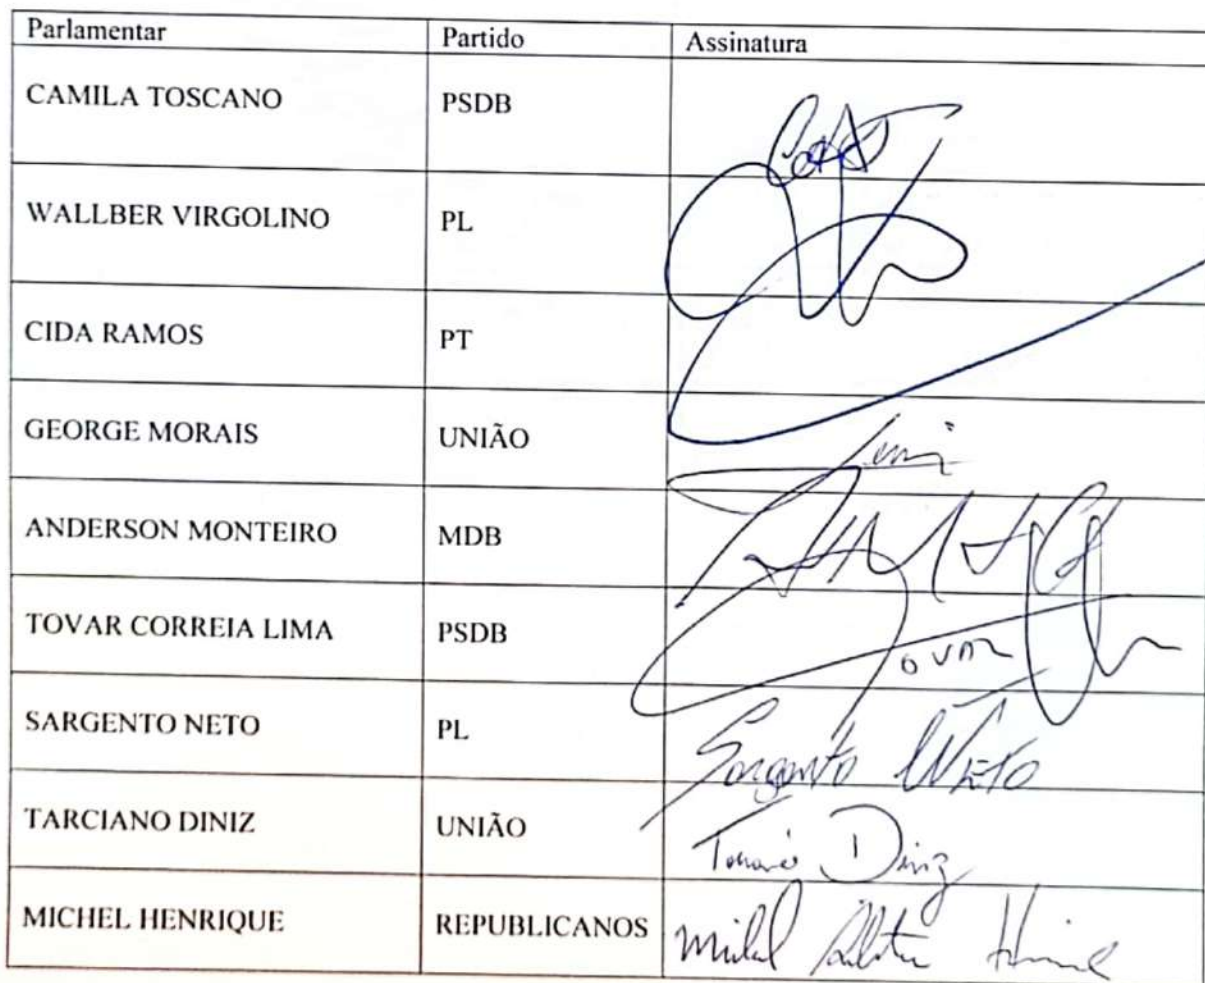 Parlamentar Partido Assinatura
CAMILA TOSCANO PSDB
WALLBER VIRGOLINO PL
CIDA RAMOS PT
GEORGE MORAIS UNIÃO
ANDERSON MONTEIRO MDB
TOVAR CORREIA LIMA PSDB OVAR
SARGENTO NETO PL Sargento Neto
TARCIANO DINIZ UNIÃO Diniz
MICHEL HENRIQUE REPUBLICANOS